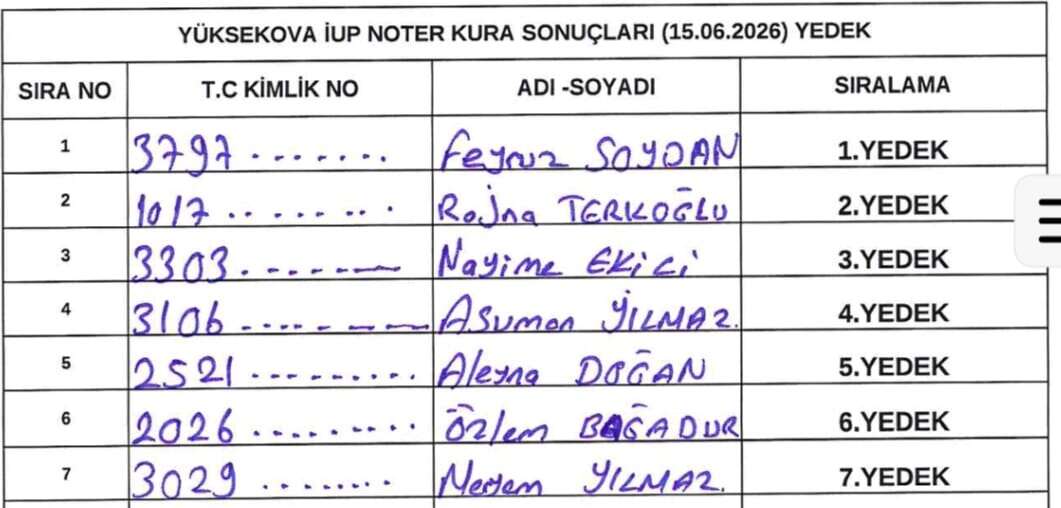 YÜKSEKOVA İUP NOTER KURA SONUÇLARI (15.06.2026) YEDEK
SIRA NO T.C KİMLİK NO ADI -SOYADI SIRALAMA
1 3797 ........ Feyruz SOYDAN 1.YEDEK
2 1017 ........ Rojna TERKOĞLU 2.YEDEK
3 3303. ------- Nayime EKİCİ 3.YEDEK
4 3106 ....------ Asuman YILMAZ. 4.YEDEK
5 2521 .......... Aleyna DOĞAN 5.YEDEK
6 2026 .......... Özlem BAĞADUR 6.YEDEK
7 3029 ........ Meryem YILMAZ. 7.YEDEK